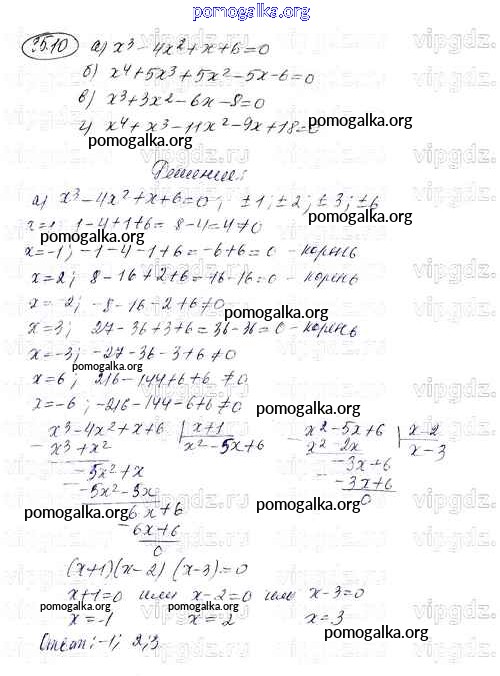 pomogalka.org
35.10 а) x³ - 4x² + x + 6 = 0
б) x⁴ + 5x³ + 5x² - 5x - 6 = 0
в) x³ + 3x² - 6x - 8 = 0
г) x⁴ + x³ - 11x² - 9x + 18 = 0
pomogalka.org
pomogalka.org
Решение:
а) x³ - 4x² + x + 6 = 0; ±1; ±2; ±3; ±6
x=1; 1 - 4 + 1 + 6 = 8 - 4 = 4 ≠ 0
pomogalka.org pomogalka.org
x=-1; -1 - 4 - 1 + 6 = -6 + 6 = 0 - корень
x=2; 8 - 16 + 2 + 6 = 16 - 16 = 0 - корень
x=-2; -8 - 16 - 2 + 6 ≠ 0
pomogalka.org
x=3; 27 - 36 + 3 + 6 = 36 - 36 = 0 - корень
x=-3; -27 - 36 - 3 + 6 ≠ 0
pomogalka.org
x=6; 216 - 144 + 6 + 6 ≠ 0
x=-6; -216 - 144 - 6 + 6 ≠ 0
pomogalka.org
x³ - 4x² + x + 6 | x+1
- x³ + x² | x² - 5x + 6
- 5x² + x
- 5x² - 5x
6x + 6
- 6x + 6
0
x² - 5x + 6 | x - 2
- x² - 2x | x - 3
- 3x + 6
- 3x + 6
0
pomogalka.org pomogalka.org
pomogalka.org
(x+1)(x-2)(x-3)=0
pomogalka.org
x+1=0 или x-2=0 или x-3=0
pomogalka.org pomogalka.org
x=-1 x=2 x=3
pomogalka.org
Ответ: -1; 2; 3
vipgdz.ru